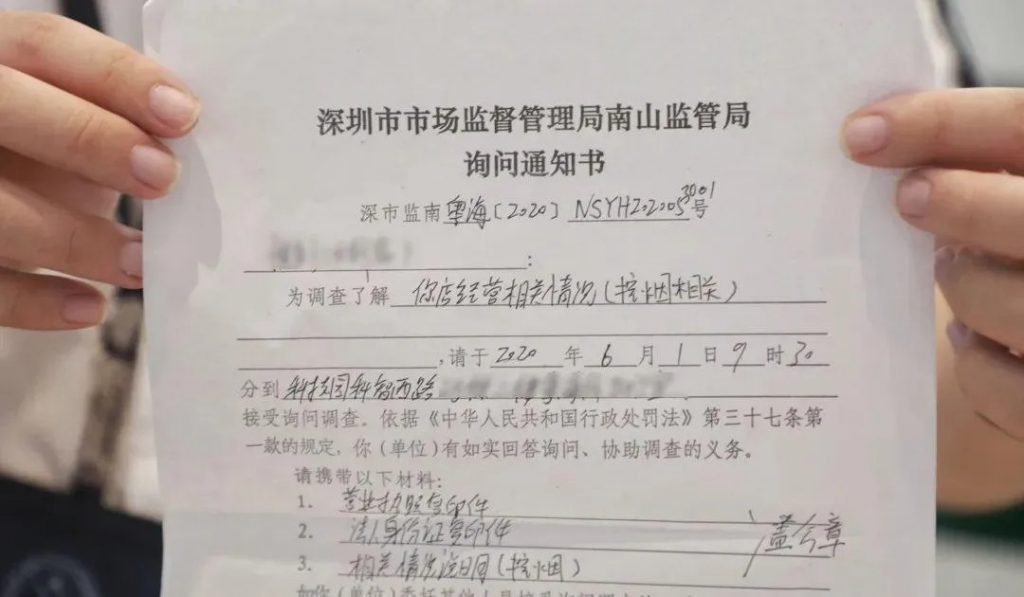 深圳市市场监督管理局南山监管局
询问通知书
深市监南粤海〔2020〕NSYH2020053001号
:
为调查了解 你店经营相关情况(控烟相关)
,请于2020年6月1日9时30
分到科技园科智西路
接受询问调查。依据《中华人民共和国行政处罚法》第三十七条第
一款的规定,你(单位)有如实回答询问、协助调查的义务。
请携带以下材料:
1. 营业执照复印件
2. 法人身份证复印件 盖公章
3. 相关情况说明(控烟)